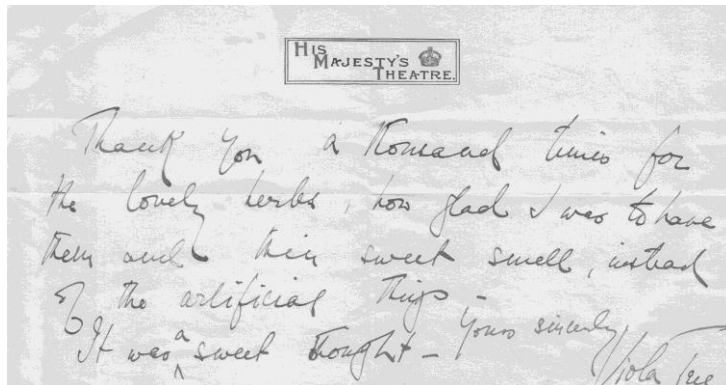 HIS
MAJESTY'S
THEATRE.
Thank you a thousand times for
the lovely herbs, how glad I was to have
them and their sweet smell, instead
of the artificial things -
It was a sweet thought - Yours sincerely
Viola Tree